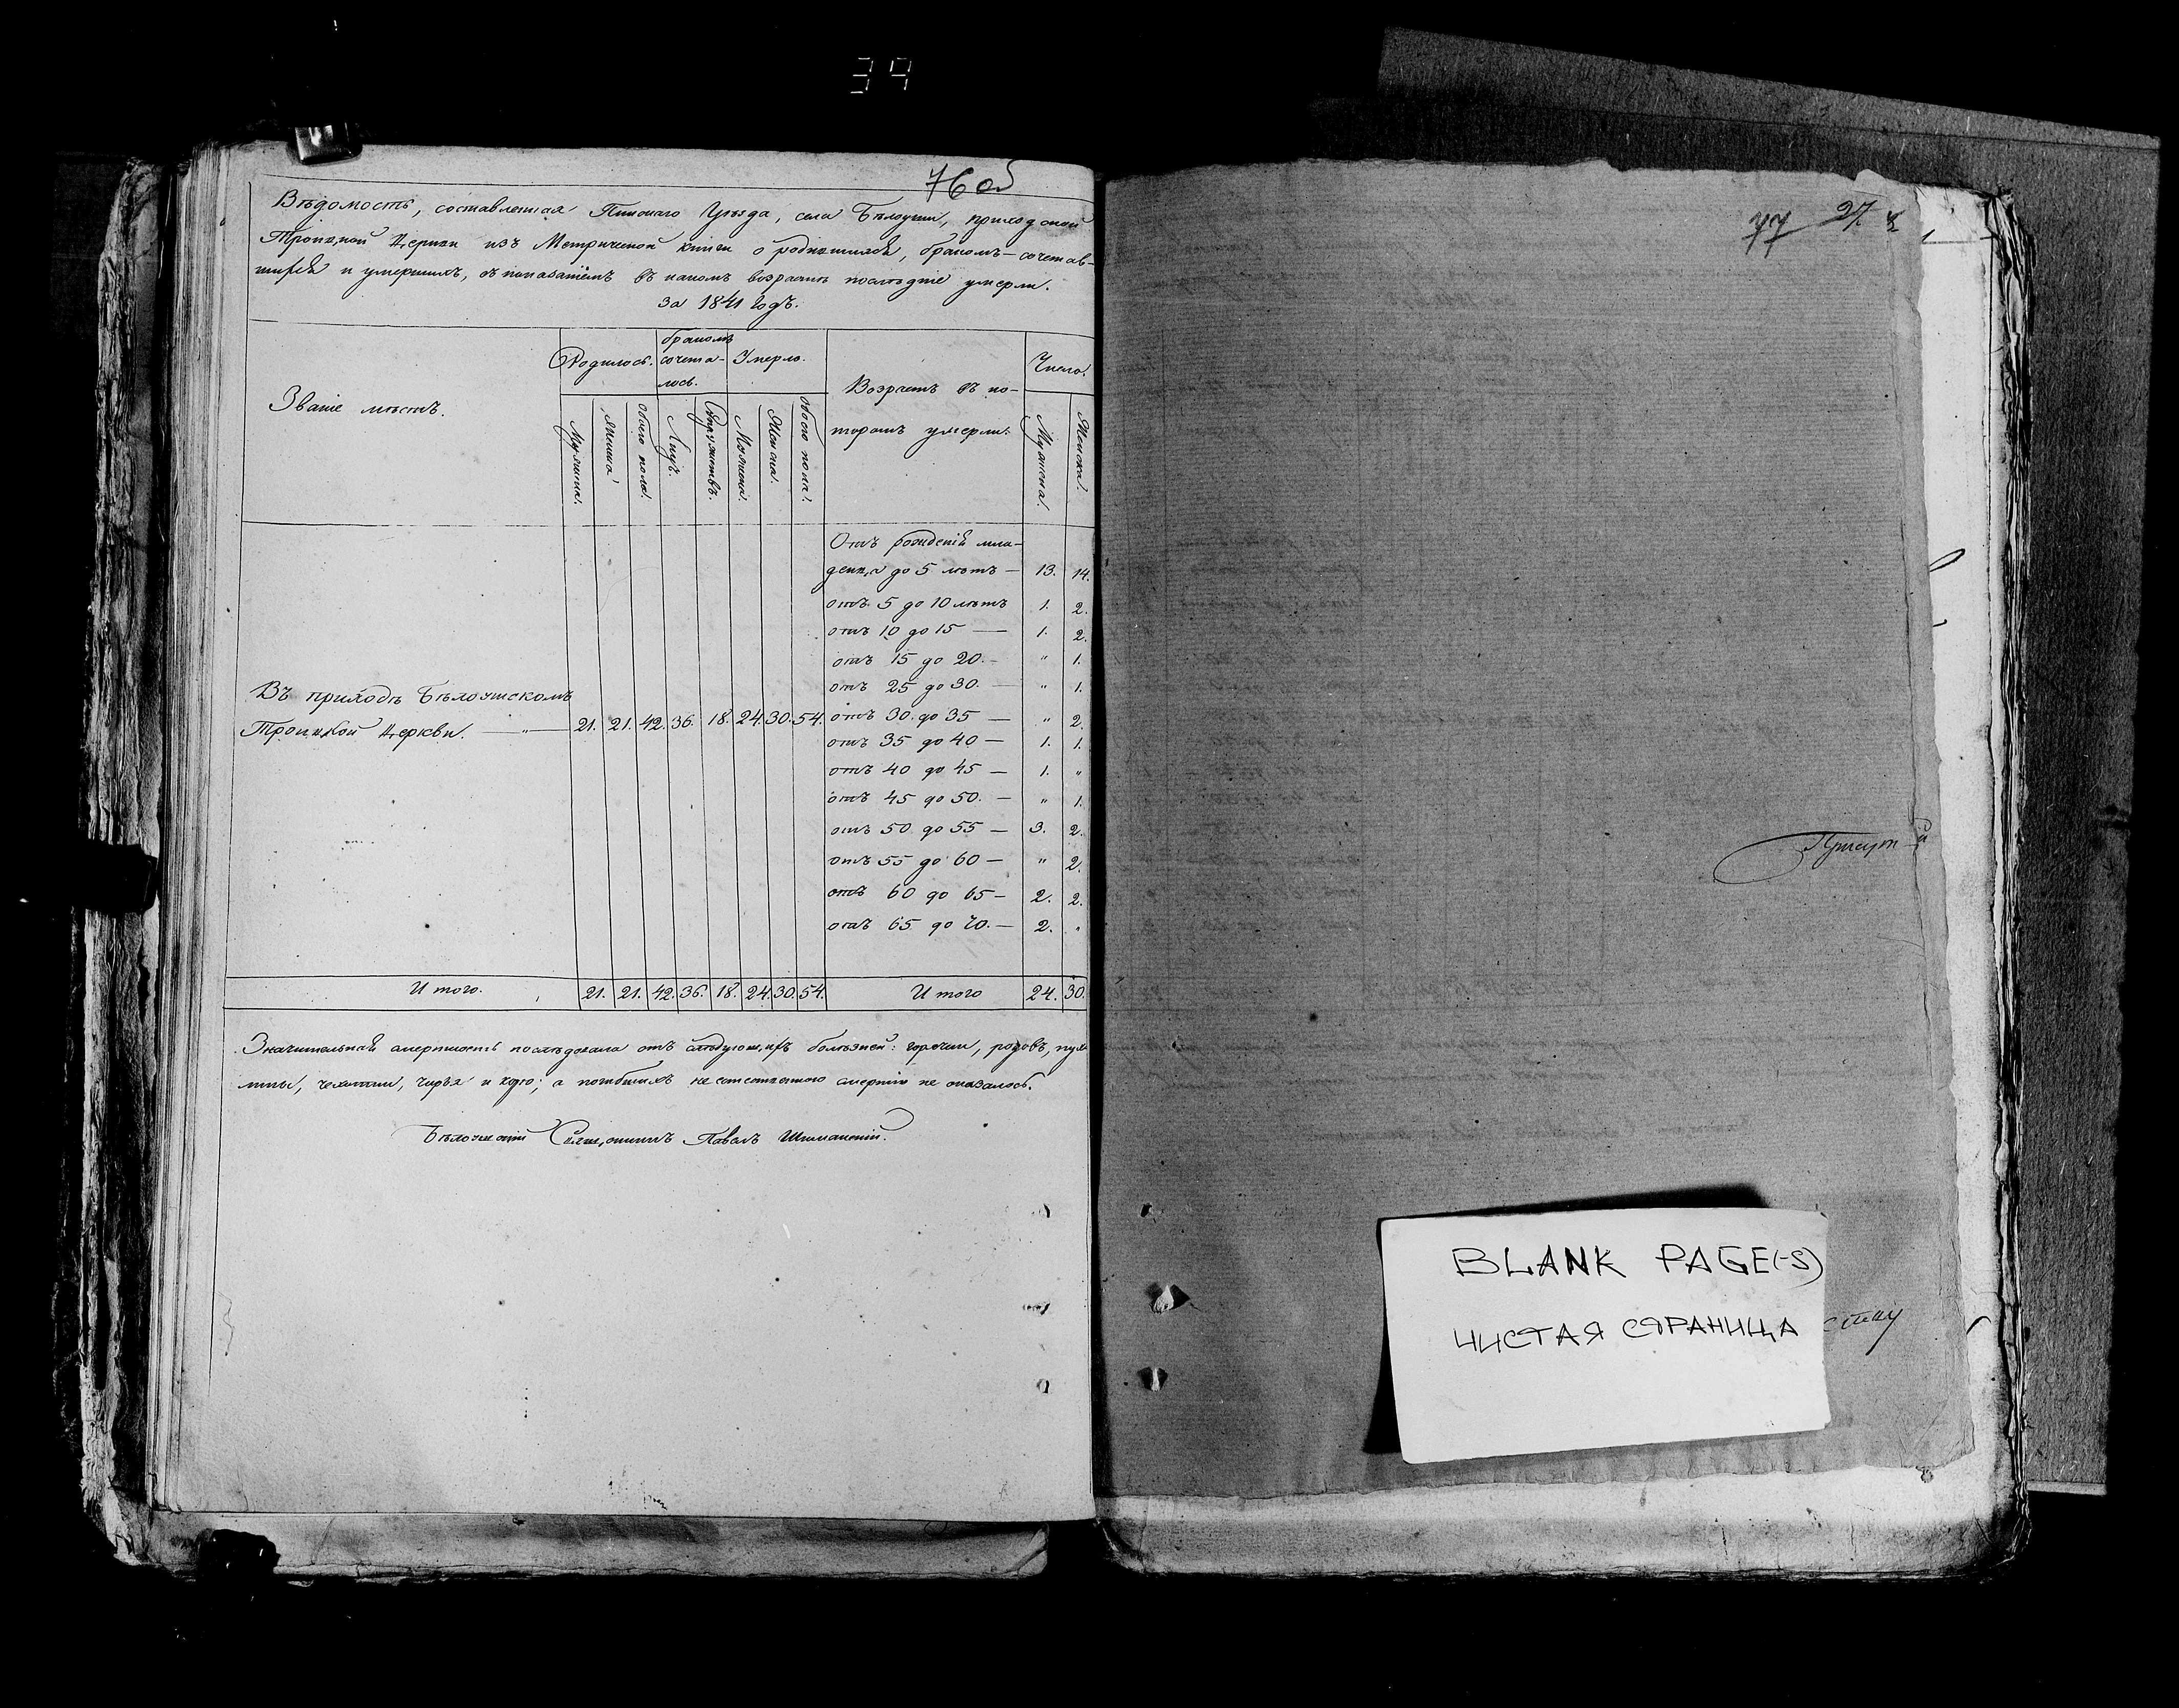 34
76 об
Вѣдомость, составленная Пинскаго Уѣзда, села Бѣлоуши, приходской
Троицкой Церкви изъ Метрической книги о родившихся, бракомъ-сочетав-
шихся и умершихъ, съ показаніемъ въ какомъ возрастѣ послѣдніе умерли.
за 1841 годъ.
Званіе мѣстъ.
Родилось.
бракомъ
сочета-
лось.
Умерло.
Возрастъ въ ко-
торомъ умерли:
Число.
Мужска.
Женска
обоего пола.
Лицъ.
Супружествъ.
Мужска.
Женска.
обоего пола.
Мужска.
Женска.
Въ приходѣ Бѣлоушскомъ
Троицкой Церкви. — „ — 21. 21. 42. 36. 18. 24. 30. 54.
Отъ рожденія мла-
денца до 5 лѣтъ — 13. 14.
отъ 5 до 10 лѣтъ 1. 2.
отъ 10 до 15 — 1. 2.
отъ 15 до 20. — „ 1.
отъ 25 до 30. — „ 1.
отъ 30. до 35 — „ 2.
отъ 35 до 40 — 1. 1.
отъ 40 до 45 — 1. „
отъ 45 до 50. — „ 1.
отъ 50 до 55 — 3. 2.
отъ 55 до 60 — „ 2.
отъ 60 до 65 — 2. 2.
отъ 65 до 70. — 2. „
И того. 21. 21. 42. 36. 18. 24. 30. 54. И того 24. 30.
Значительная смертность послѣдовала отъ слѣдующихъ болѣзней: горячки, родовъ, пух
лины, чахотки, чирья и; а погибшихъ не естественною смертію не оказалось.
Бѣлоушскій Священникъ Павелъ Шиманскій.
77 27.
BLANK PAGE(-S)
ЧИСТАЯ СТРАНИЦА